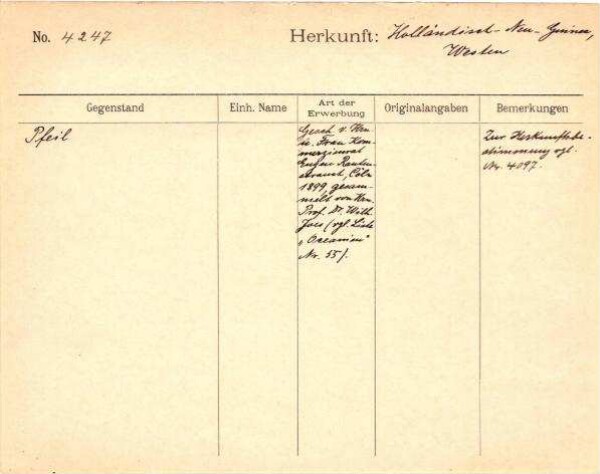 No. 4247
Herkunft: Holländisch-Neu-Guinea,
Westen
Gegenstand
Einh. Name
Art der
Erwerbung
Originalangaben
Bemerkungen
Pfeil
Gesch. v. Hrn
u. Frau Kom-
merzienrat
Eugen Rauten-
strauch, Cöln
1899, gesam-
melt von Hrn.
Prof. Dr. Wilh.
Joest (vgl. Liste
„Oceanien"
Nr. 55).
Zur Herkunftsbe-
stimmung vgl.
Nr. 4097.